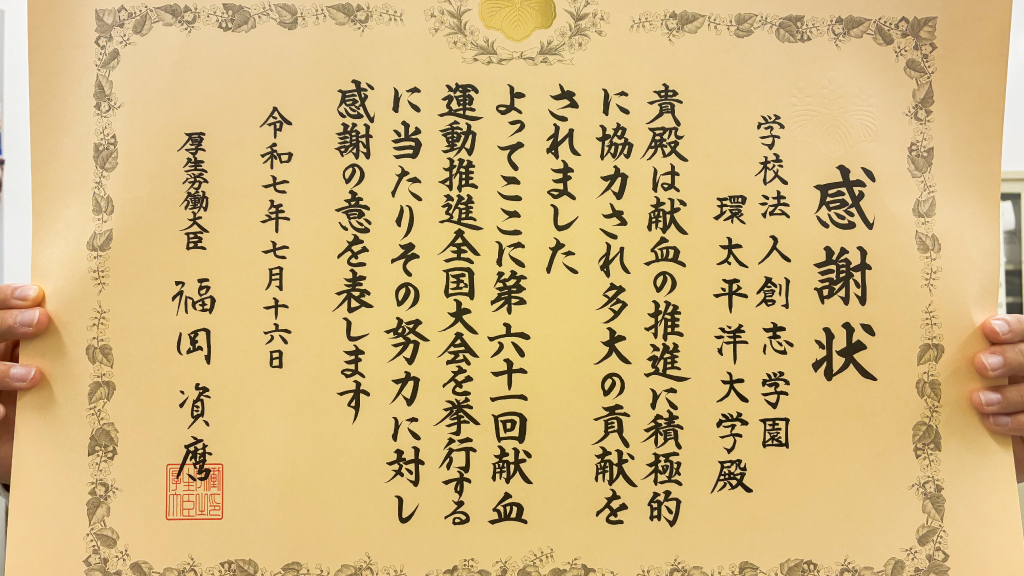 感謝状
学校法人創志学園
環太平洋大学殿
貴殿は献血の推進に積極的
に協力され多大の貢献を
されました
よってここに第六十一回献血
運動推進全国大会を挙行する
に当たりその努力に対し
感謝の意を表します
令和七年七月十六日
厚生労働大臣 福岡資麿